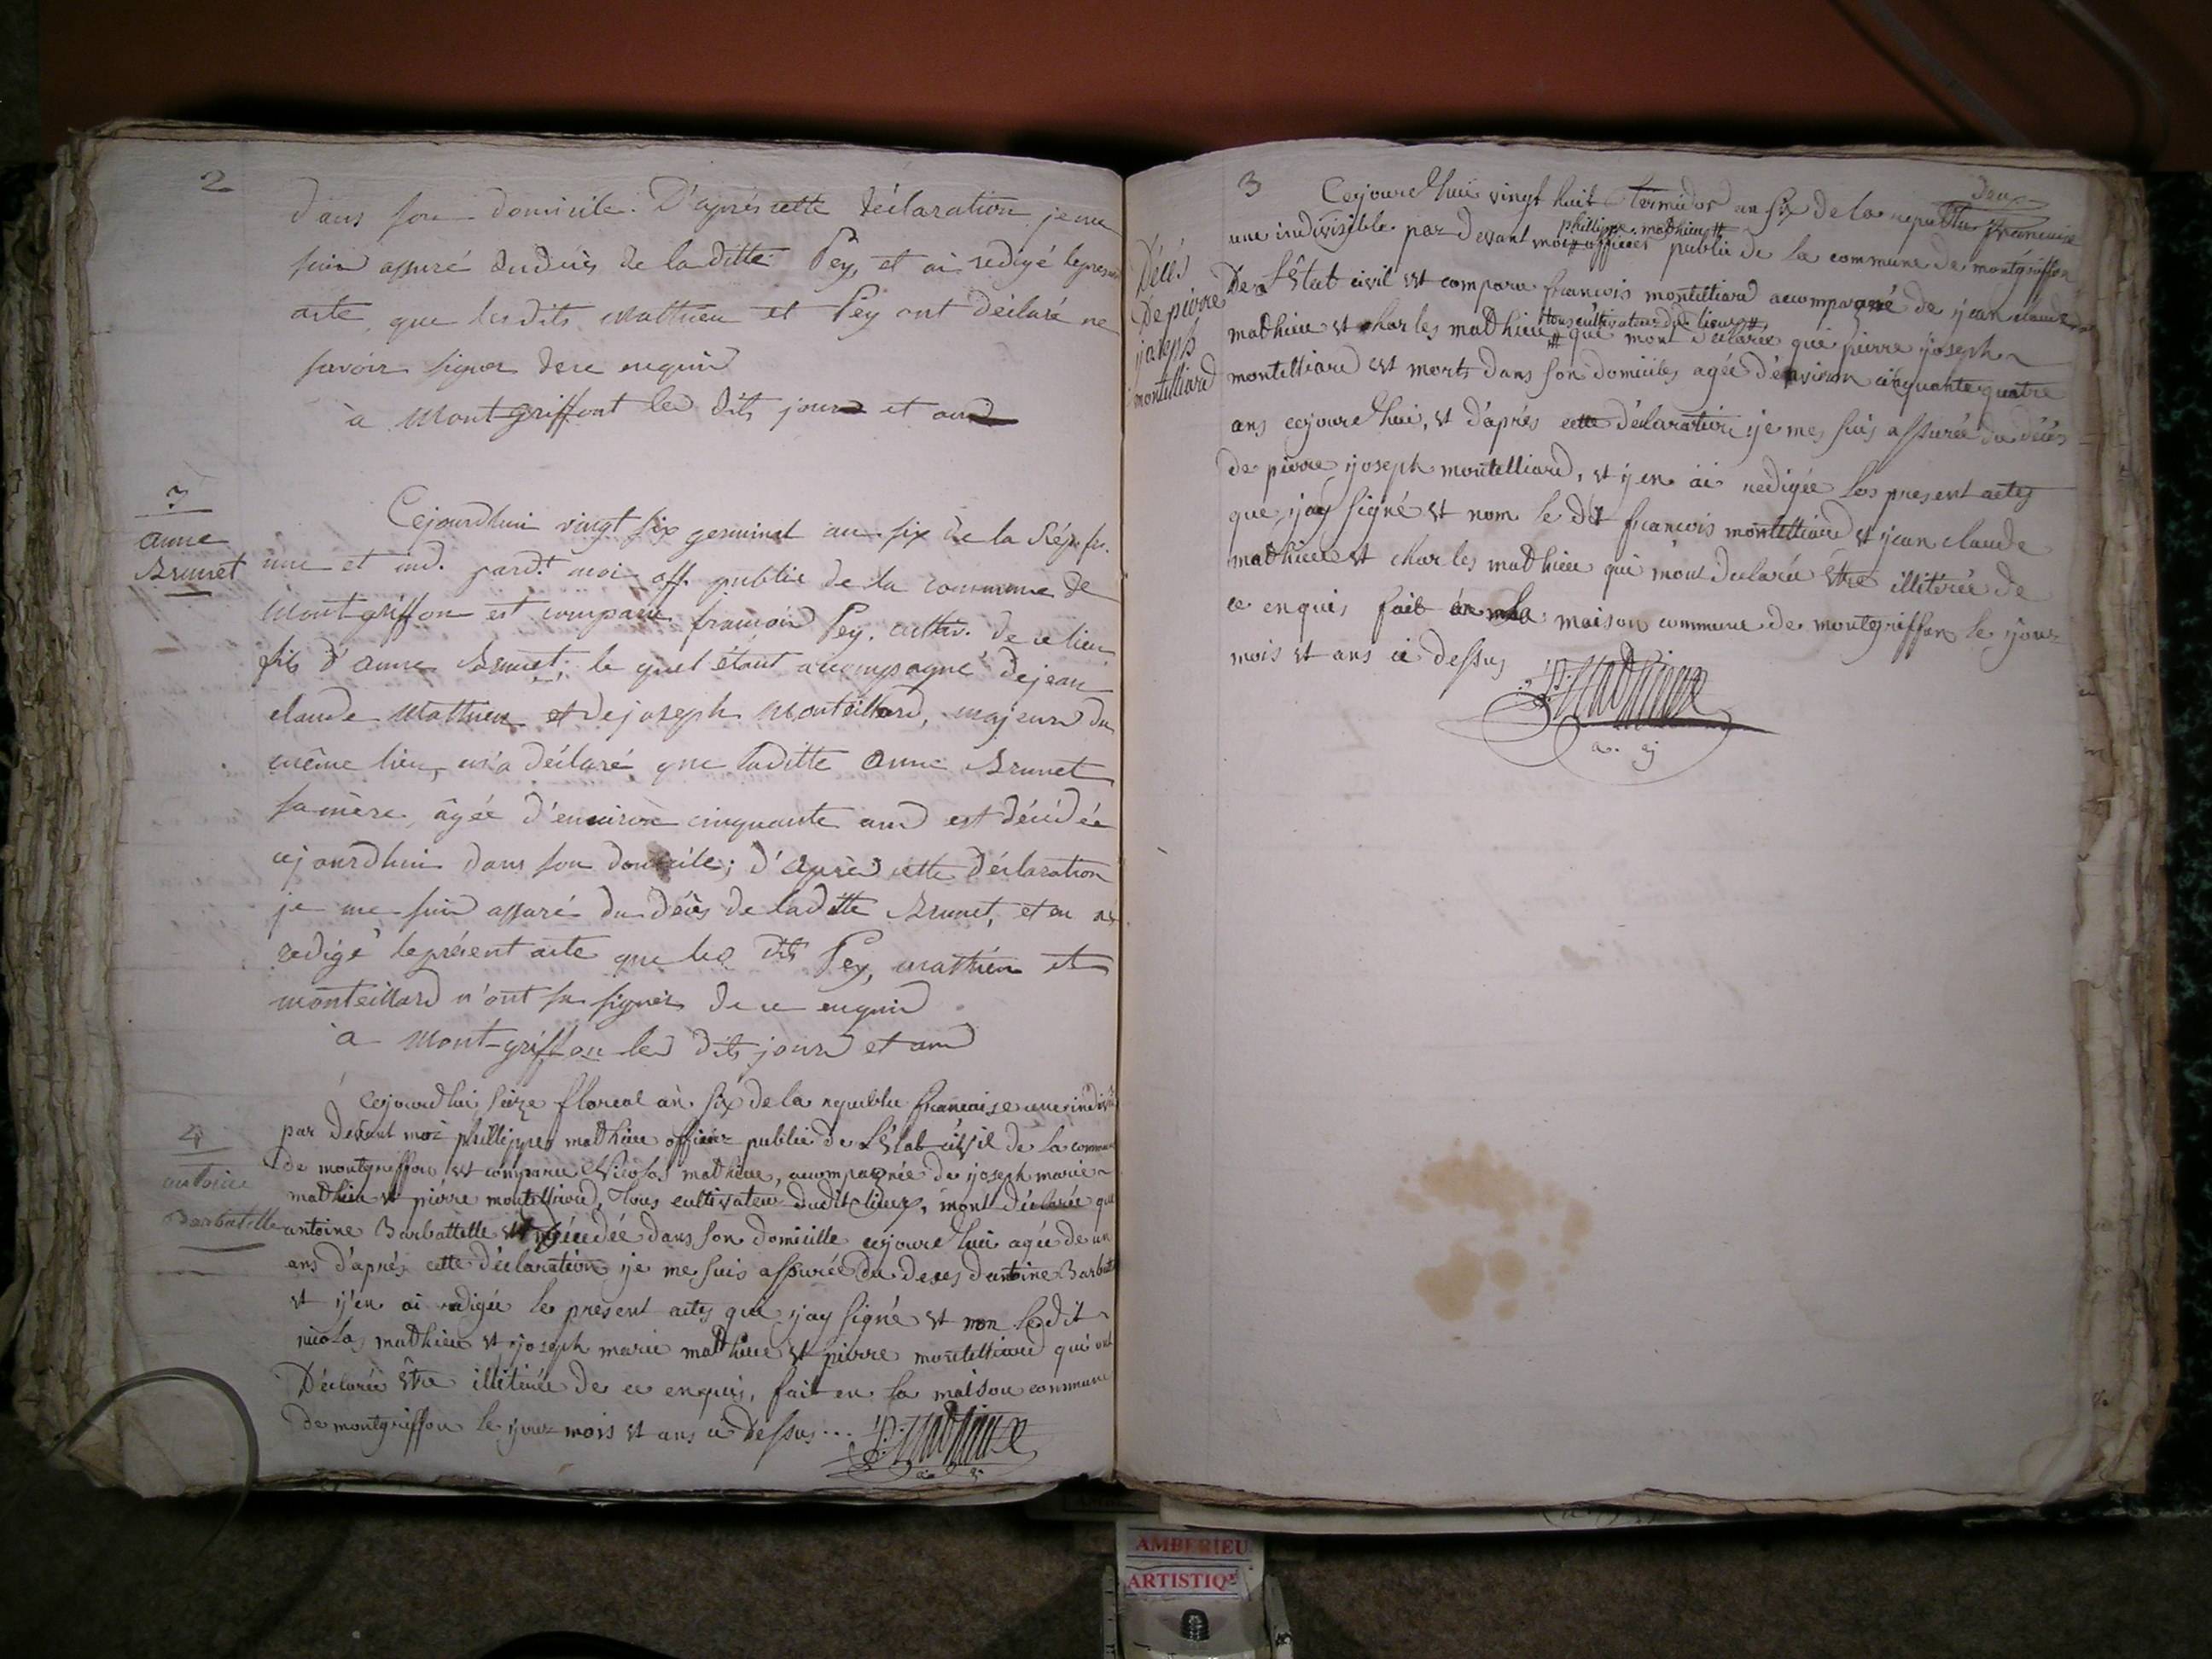 2
dans son domicile. D'après cette déclaration je me
suis assuré du décès de la ditte Pey, et ai redigé le present
acte, que les dits Mathieu et Pey ont déclaré ne
savoir signer de ce enquis
à Montgriffont les dits jours et ans
3
anne
Brunet
Cejourdhui vingt six germinal an six de la Rép. fr.
une et ind. pard.t moi off. public de la commune de
Montgriffon est comparu françois Pey. cultiv. de ce lieu
fils d'anne Brunet; le quel étant accompagné de jean
claude Mathieu et de joseph Monteillard, majeurs du
même lieu, m'a déclaré que laditte anne Brunet
sa mère, âgée d'environ cinquante ans est décédée
cejourdhui dans son domicile; d'après cette déclaration
je me suis assuré du décès de laditte Brunet, et en ai
redigé le présent acte que les dits Pey, mathieu et
monteillard n'ont su signer de ce enquis
à Montgriffon les dits jours et ans
4
antoine
Barbatelle
Cejourdhui seize floreal an six de la republie francaise une indivi
par devant moi phillippes mathieu officier public de L'êtat civil de la commune
de montgriffon est comparu Nicolas mathieu, accompagnée de ijoseph marie
mathieu et pierre montelliard, Tous cultivateur dudit lieux, mont déclarée que
antoine Barbattelle est décedée dans son domicille cejourdhui agée de un
ans d'après cette déclaration ije me suis assurée du deces dantoine Barbate
et ij'en ai redigée le present actes que ijay signé et non ledit
nicolas mathieu et ijoseph marie mathieu et pierre montelliard qui ont
Déclarée être illiterée de ce enquis, fait en la maison commune
de montgriffon le ijour mois et ans ci dessus... P. Mathieu
3
Deux
Cejourdhui vingt huit termidor an six de la republie francaise
phillippe mathieu #
une indivisible par devant moi # officier public de la commune de montgriffon
Décés
De pierre
joseph
montelliard
De L'êtat civil est comparu francois montelliard accompagné de ijean claude
tous cultivateur du lieux #
mathieu et charles mathieu # qui mont déclarée que pierre ijoseph
montelliard est morts dans son domiciles agée d'environ cinquante quatre
ans cejourdhui, et d'après cette déclaration ije mes suis assurée du décés
de pierre ijoseph montelliard, et ij en ai redigée les present actes
que ijay signé et nom le dit francois montelliard et ijean claude
mathieu et charles mathieu qui mont declarée être illiterée de
ce enquis fait en la maison commune de montgriffon le ijour
mois et ans ci dessus
P. Mathieu
AMBERIEU
ARTISTIQ